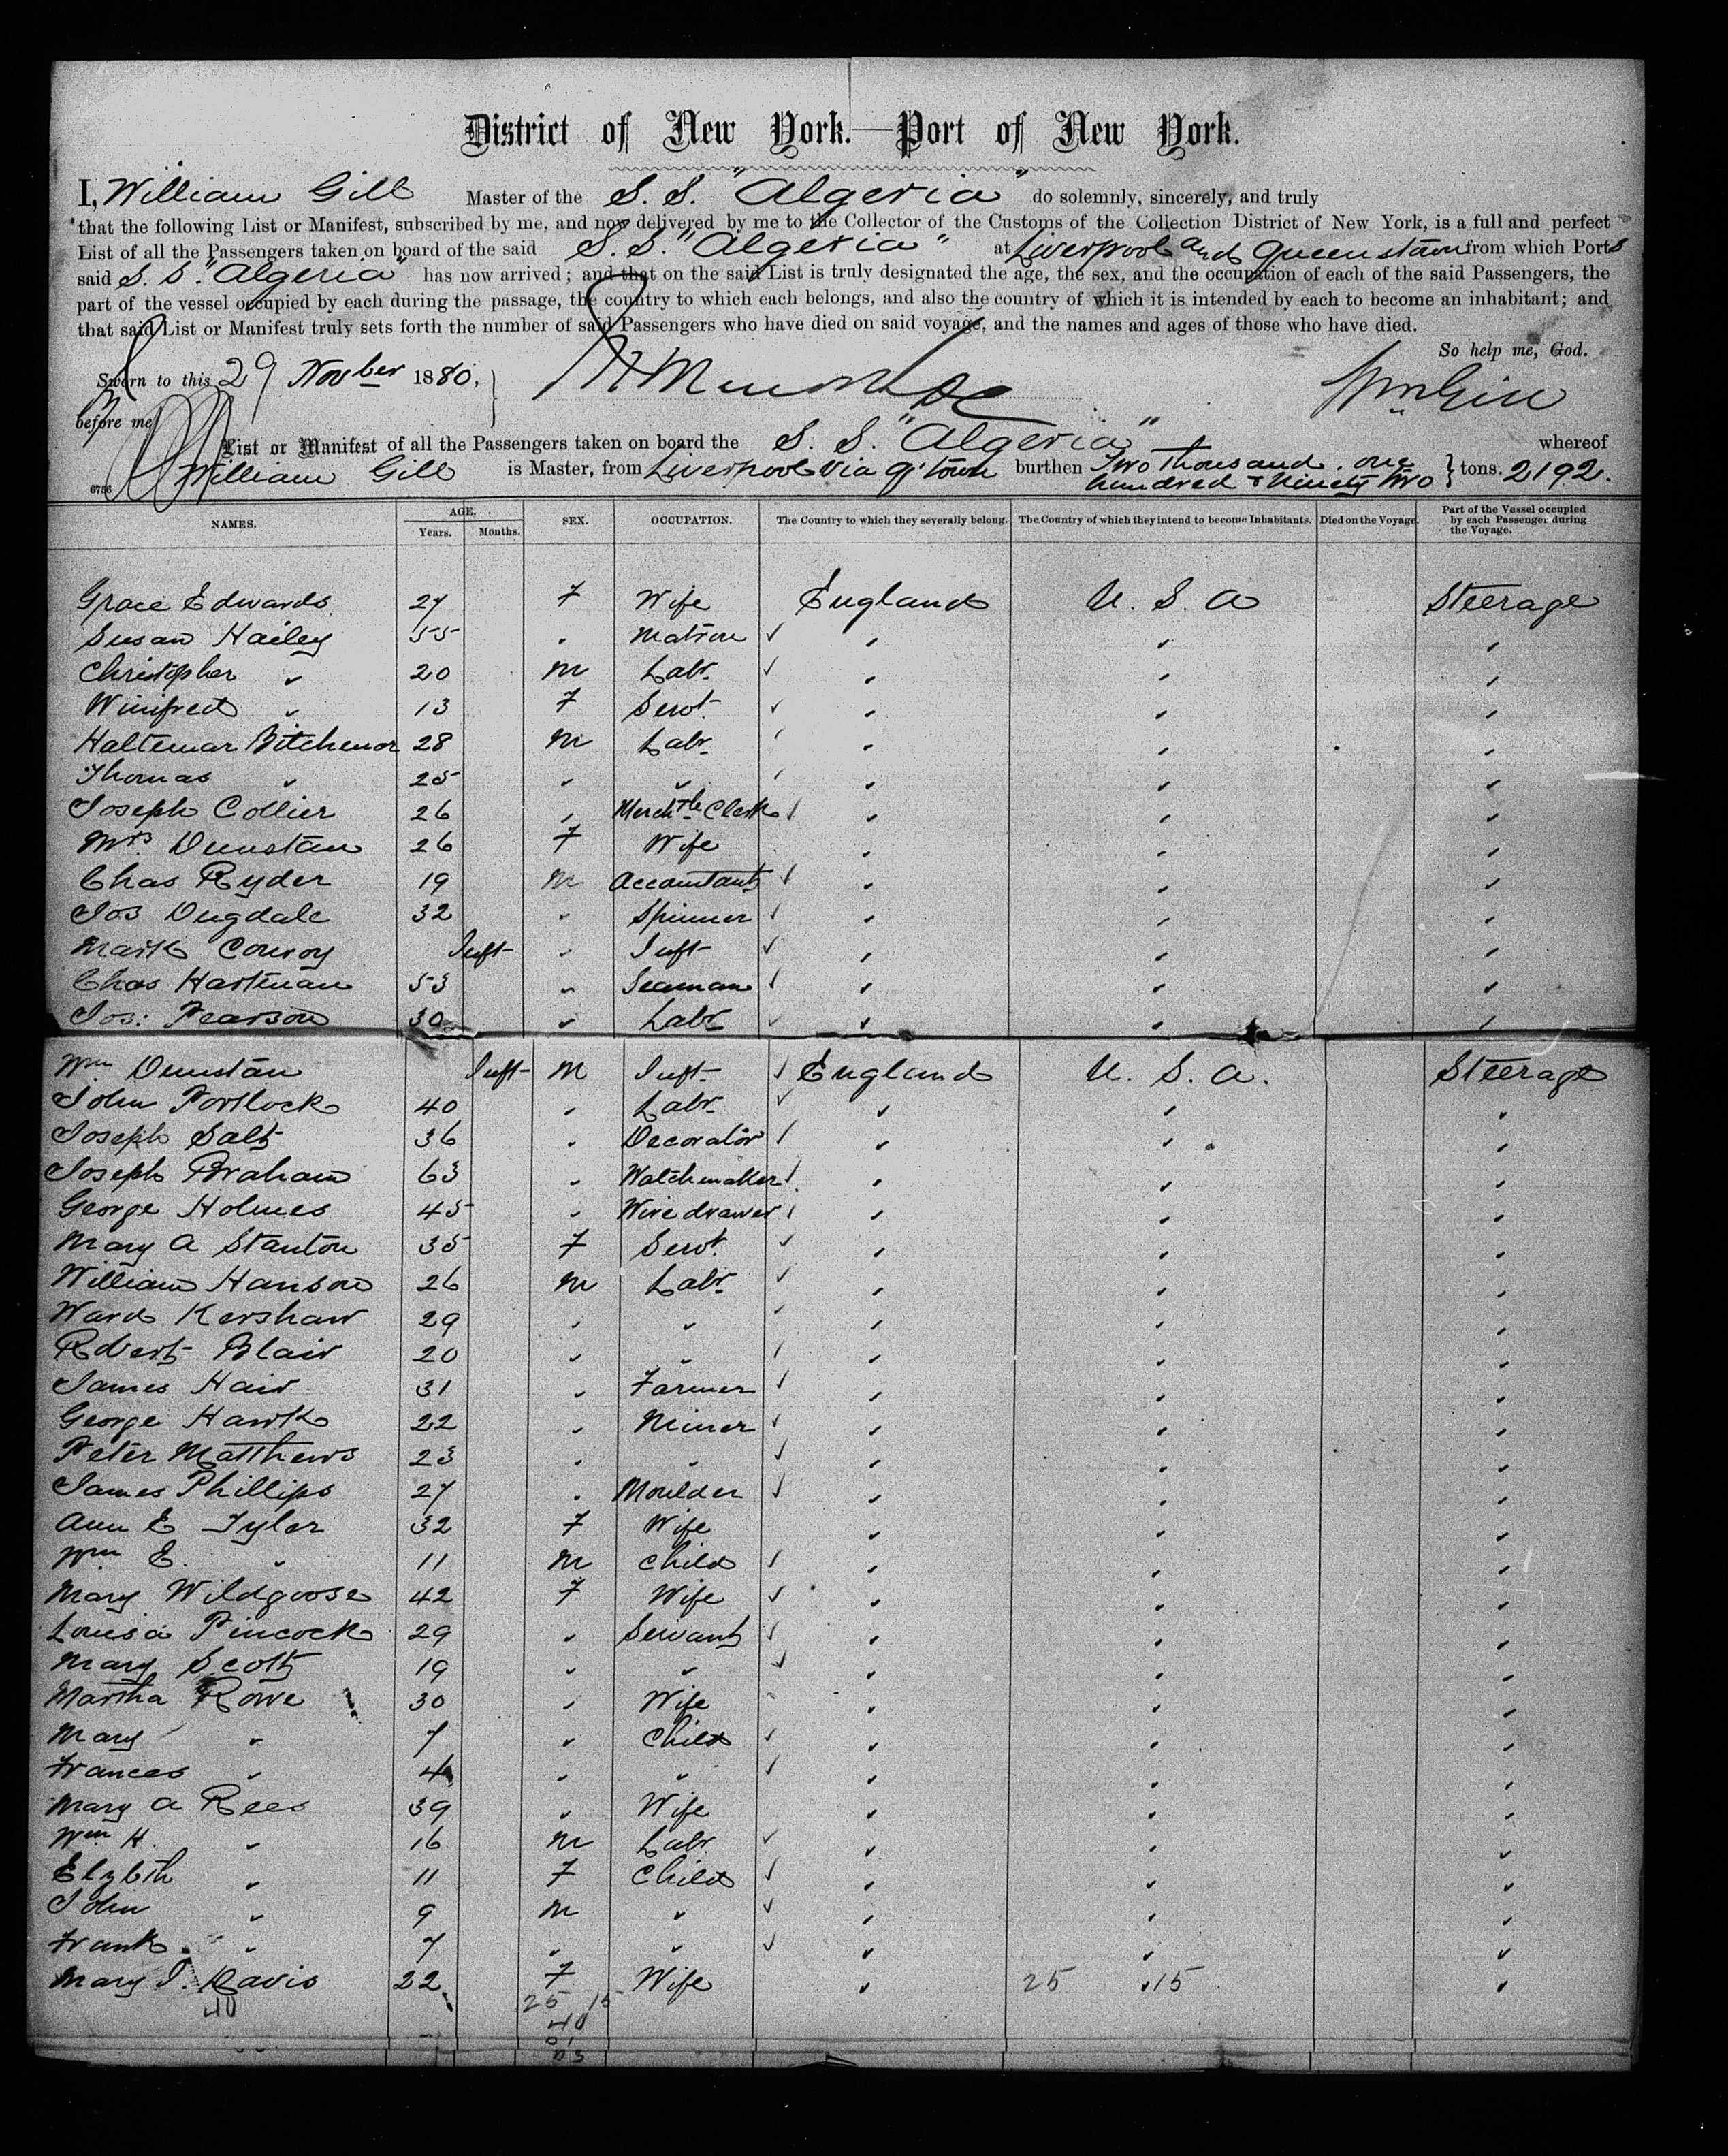 District of New York.—Port of New York.
I, William Gill Master of the S. S. "Algeria" do solemnly, sincerely, and truly
that the following List or Manifest, subscribed by me, and now delivered by me to the Collector of the Customs of the Collection District of New York, is a full and perfect
List of all the Passengers taken on board of the said S. S. "Algeria" at Liverpool and Queenstown from which Ports
said S. S. "Algeria" has now arrived; and that on the said List is truly designated the age, the sex, and the occupation of each of the said Passengers, the
part of the vessel occupied by each during the passage, the country to which each belongs, and also the country of which it is intended by each to become an inhabitant; and
that said List or Manifest truly sets forth the number of said Passengers who have died on said voyage, and the names and ages of those who have died.
So help me, God.
Sworn to this 29 Novber 1880,
Wm Gill
before me
List or Manifest of all the Passengers taken on board the S. S. "Algeria" whereof
William Gill is Master, from Liverpool via Q'town burthen Two thousand one hundred & Ninety two tons. 2192.
6756
NAMES. AGE. Years. Months. SEX. OCCUPATION. The Country to which they severally belong. The Country of which they intend to become Inhabitants. Died on the Voyage. Part of the Vessel occupied by each Passenger during the Voyage.
Grace Edwards 27 F Wife England U. S. A Steerage
Susan Hailey 55 " Matron ✓ " " "
Christopher " 20 M Labr ✓ " " "
Winifred " 13 F Servt ✓ " " "
Haltemar Bitchenor 28 M Labr ✓ " " "
Thomas " 25 " " ✓ " " "
Joseph Collier 26 " Merchts Clerk ✓ " " "
Mrs Dunstan 26 F Wife " " "
Chas Ryder 19 M Accountant ✓ " " "
Jos Dugdale 32 " Spinner ✓ " " "
Mark Conroy Inft " Inft ✓ " " "
Chas Hartman 53 " Seaman ✓ " " "
Jos: Pearson 30 " Labr ✓ " " "
Wm Dunstan Inft M Inft ✓ England U. S. A. Steerage
John Portlock 40 " Labr ✓ " " "
Joseph Salt 36 " Decorator ✓ " " "
Joseph Braham 63 " Watchmaker ✓ " " "
George Holmes 45 " Wire drawer ✓ " " "
Mary A Stanton 35 F Servt ✓ " " "
William Hanson 26 M Labr ✓ " " "
Ward Kershaw 29 " " ✓ " " "
Robert Blair 20 " " ✓ " " "
James Hair 31 " Farmer ✓ " " "
George Hawk 22 " Miner ✓ " " "
Peter Matthews 23 " " ✓ " " "
James Phillips 27 " Moulder ✓ " " "
Ann E Tyler 32 F Wife " " "
Wm E. " 11 M Child ✓ " " "
Mary Wildgoose 42 F Wife ✓ " " "
Louisa Pincock 29 " Servant ✓ " " "
Mary Scott 19 " " ✓ " " "
Martha Rowe 30 " Wife " " "
Mary " 7 " Child ✓ " " "
Frances " 4 " " ✓ " " "
Mary A Rees 39 " Wife " " "
Wm H. " 16 M Labr ✓ " " "
Elzbth " 11 F Child ✓ " " "
John " 9 M " ✓ " " "
Frank " 7 " " ✓ " " "
Mary J. Davis 22 F Wife " 25 15 "
40 25 15
40